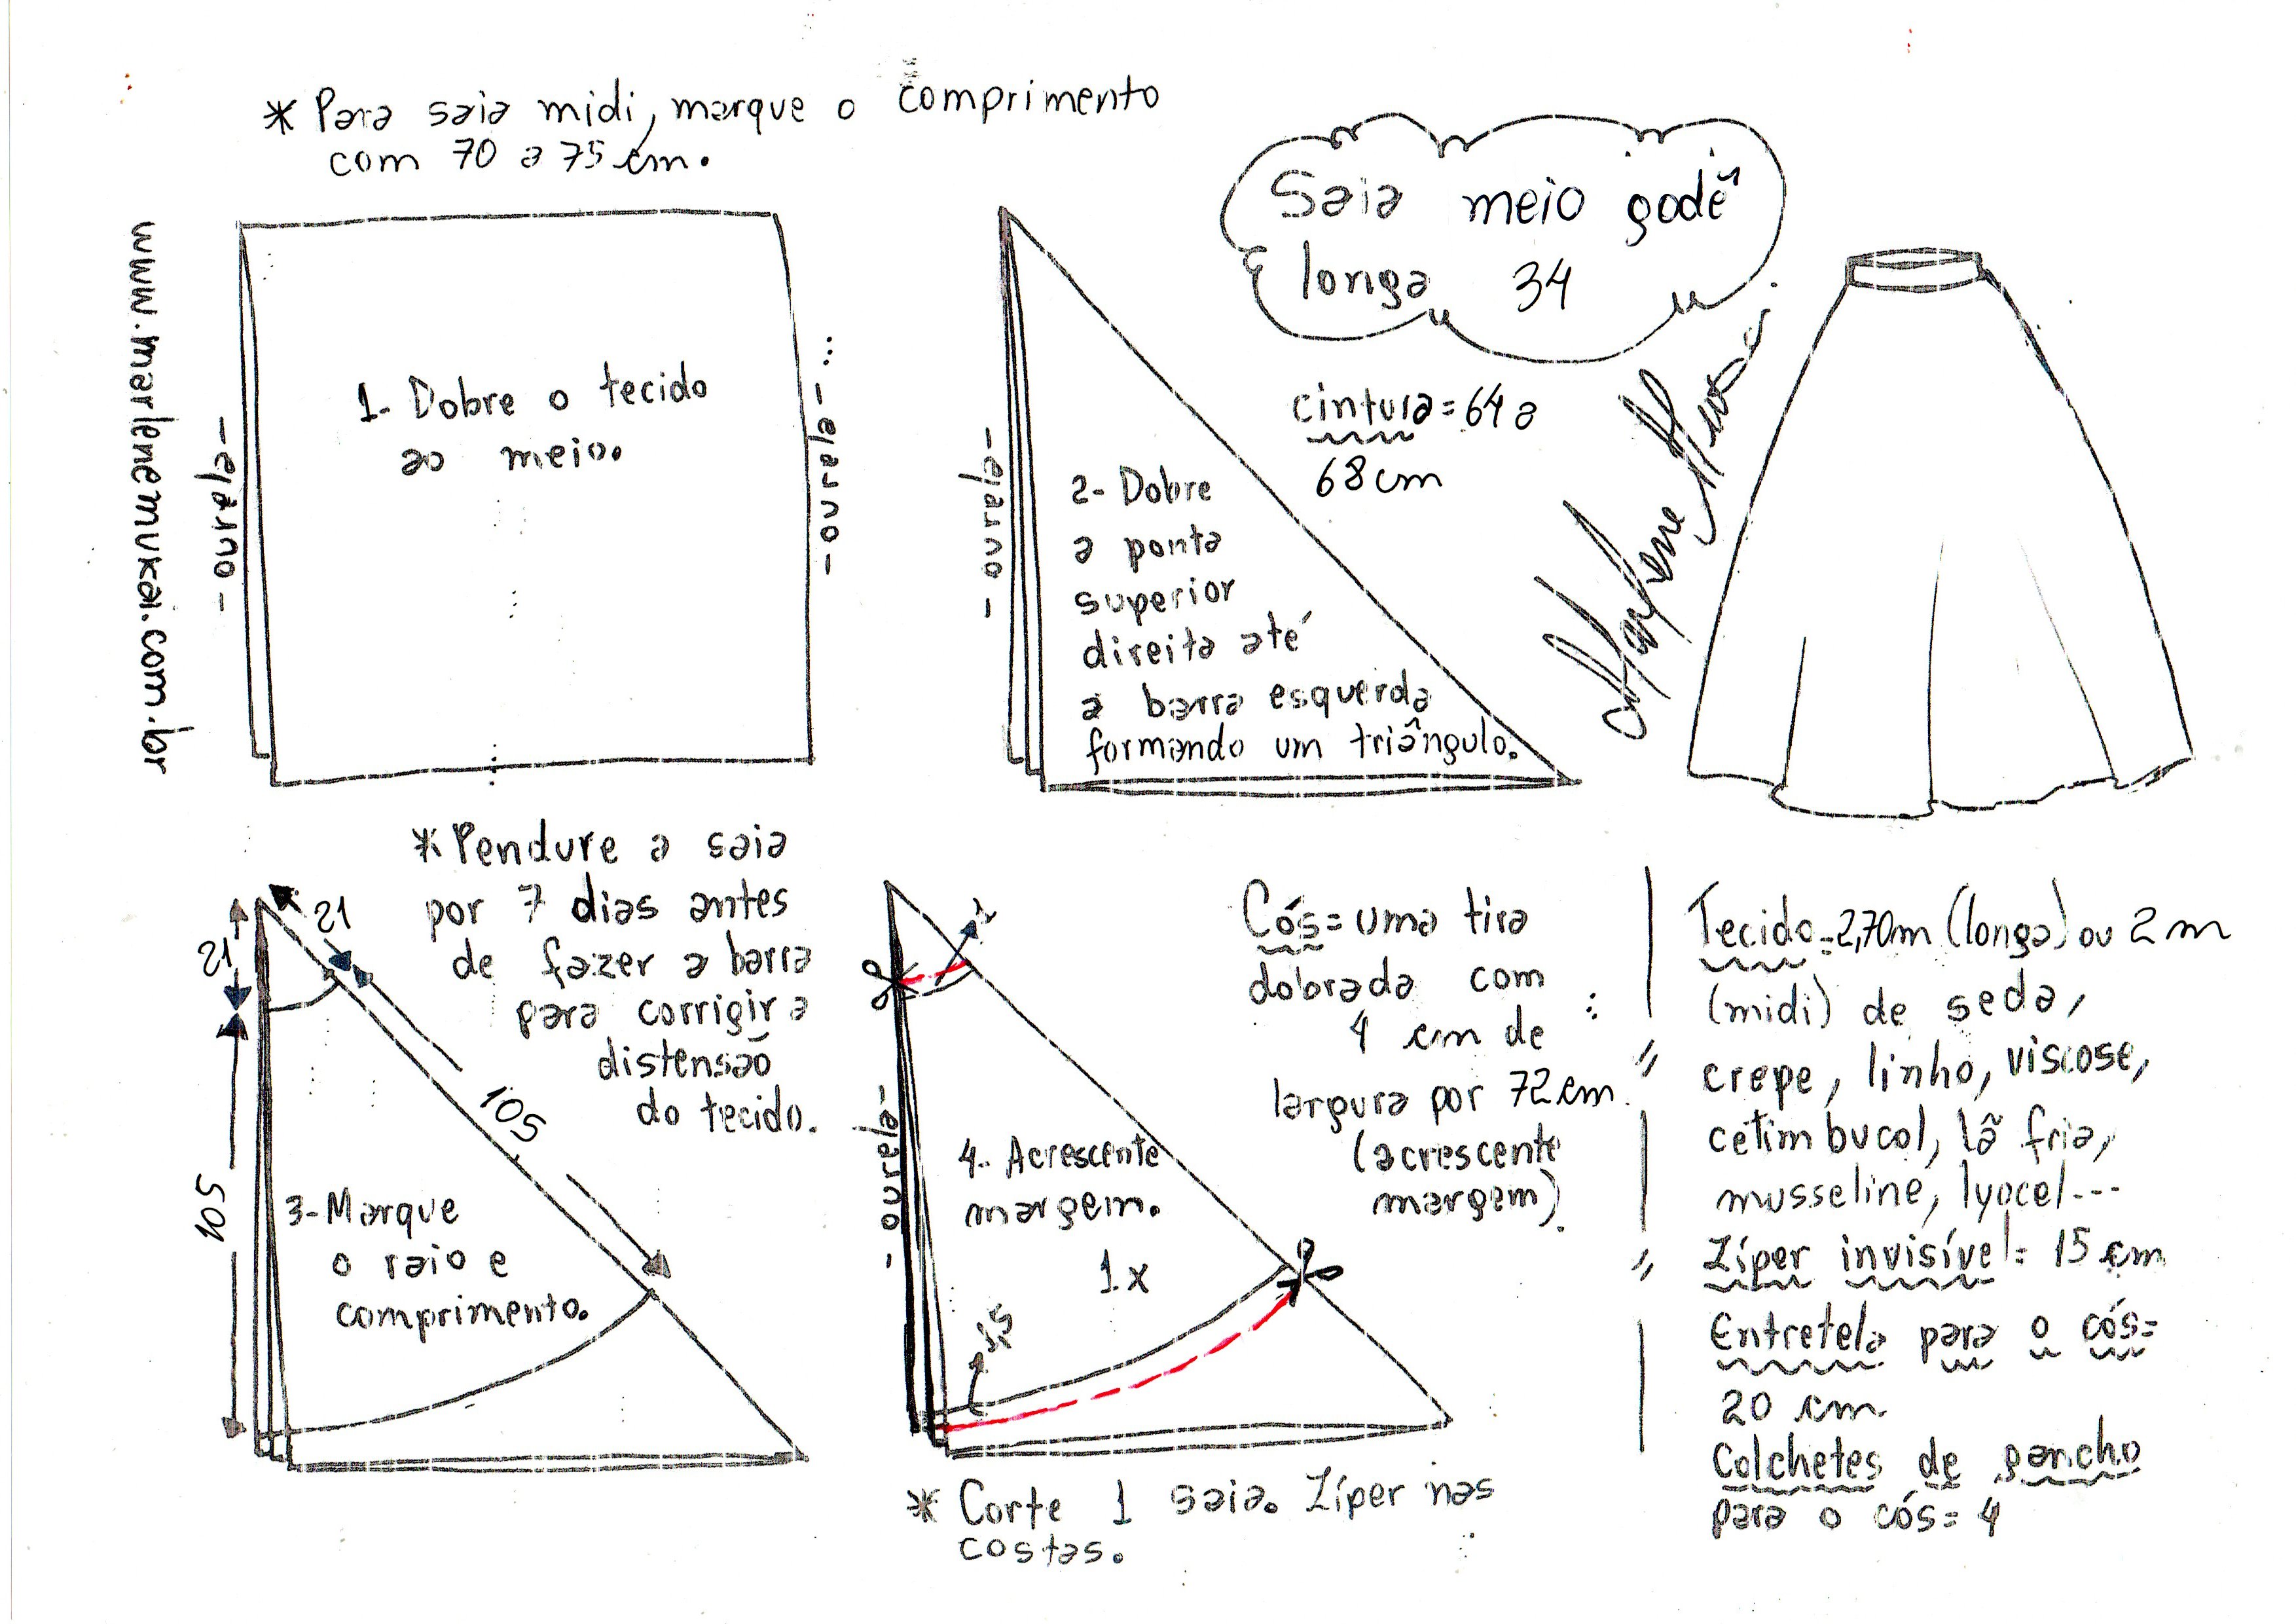 * Para saia midi, marque o comprimento
com 70 a 75 cm.
www.marlenemukai.com.br
Saia meio godê
longa 34
cintura = 64 a
68 cm
Marlene Mukai
- ourela -
1- Dobre o tecido
ao meio.
- ourela -
- ourela -
2- Dobre
a ponta
superior
direita até
a barra esquerda
formando um triângulo.
* Pendure a saia
por 7 dias antes
de fazer a barra
para corrigir a
distensão
do tecido.
21
21
105
105
3- Marque
o raio e
comprimento.
1
- ourela -
4- Acrescente
margem.
1x
1,5
* Corte 1 saia. Zíper nas
costas.
Cós = uma tira
dobrada com
4 cm de
largura por 72 cm
(acrescente
margem).
Tecido = 2,70m (longa) ou 2 m
(midi) de seda,
crepe, linho, viscose,
cetim bucol, lã fria,
musseline, lyocel...
Zíper invisível = 15 cm
Entretela para o cós =
20 cm
Colchetes de gancho
para o cós = 4